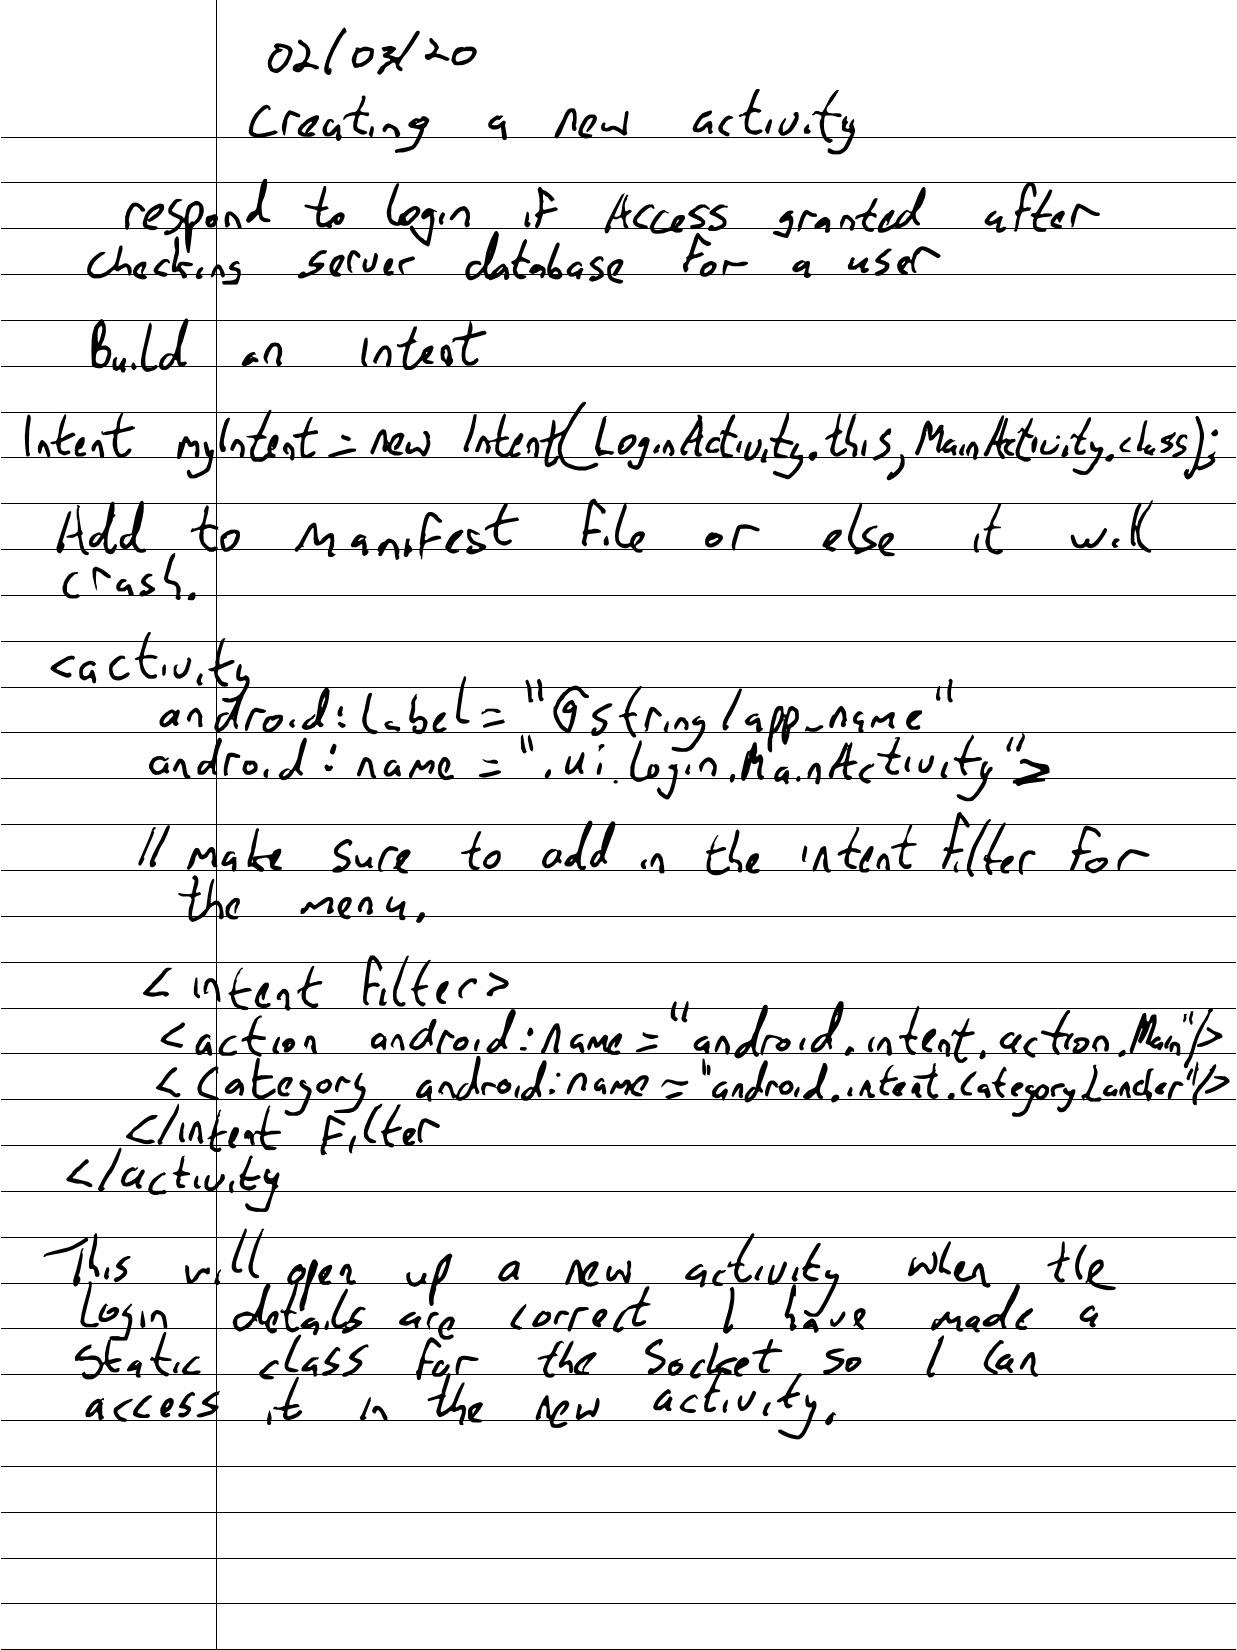 02/03/20
Creating a new activity
respond to login if Access granted after
checking server database for a user
Build an Intent
Intent myIntent = new Intent(LoginActivity.this, MainActivity.class);
Add to manifest file or else it will
crash.
<activity
android:label="@string/app_name"
android:name=".ui.login.MainActivity">
// make sure to add in the intent filter for
the menu.
<intent filter>
<action android:name="android.intent.action.Main"/>
<Category android:name="android.intent.category.Lancher"/>
</intent Filter
</activity
This will open up a new activity when the
Login details are correct I have made a
static class for the Socket so I can
access it in the new activity.